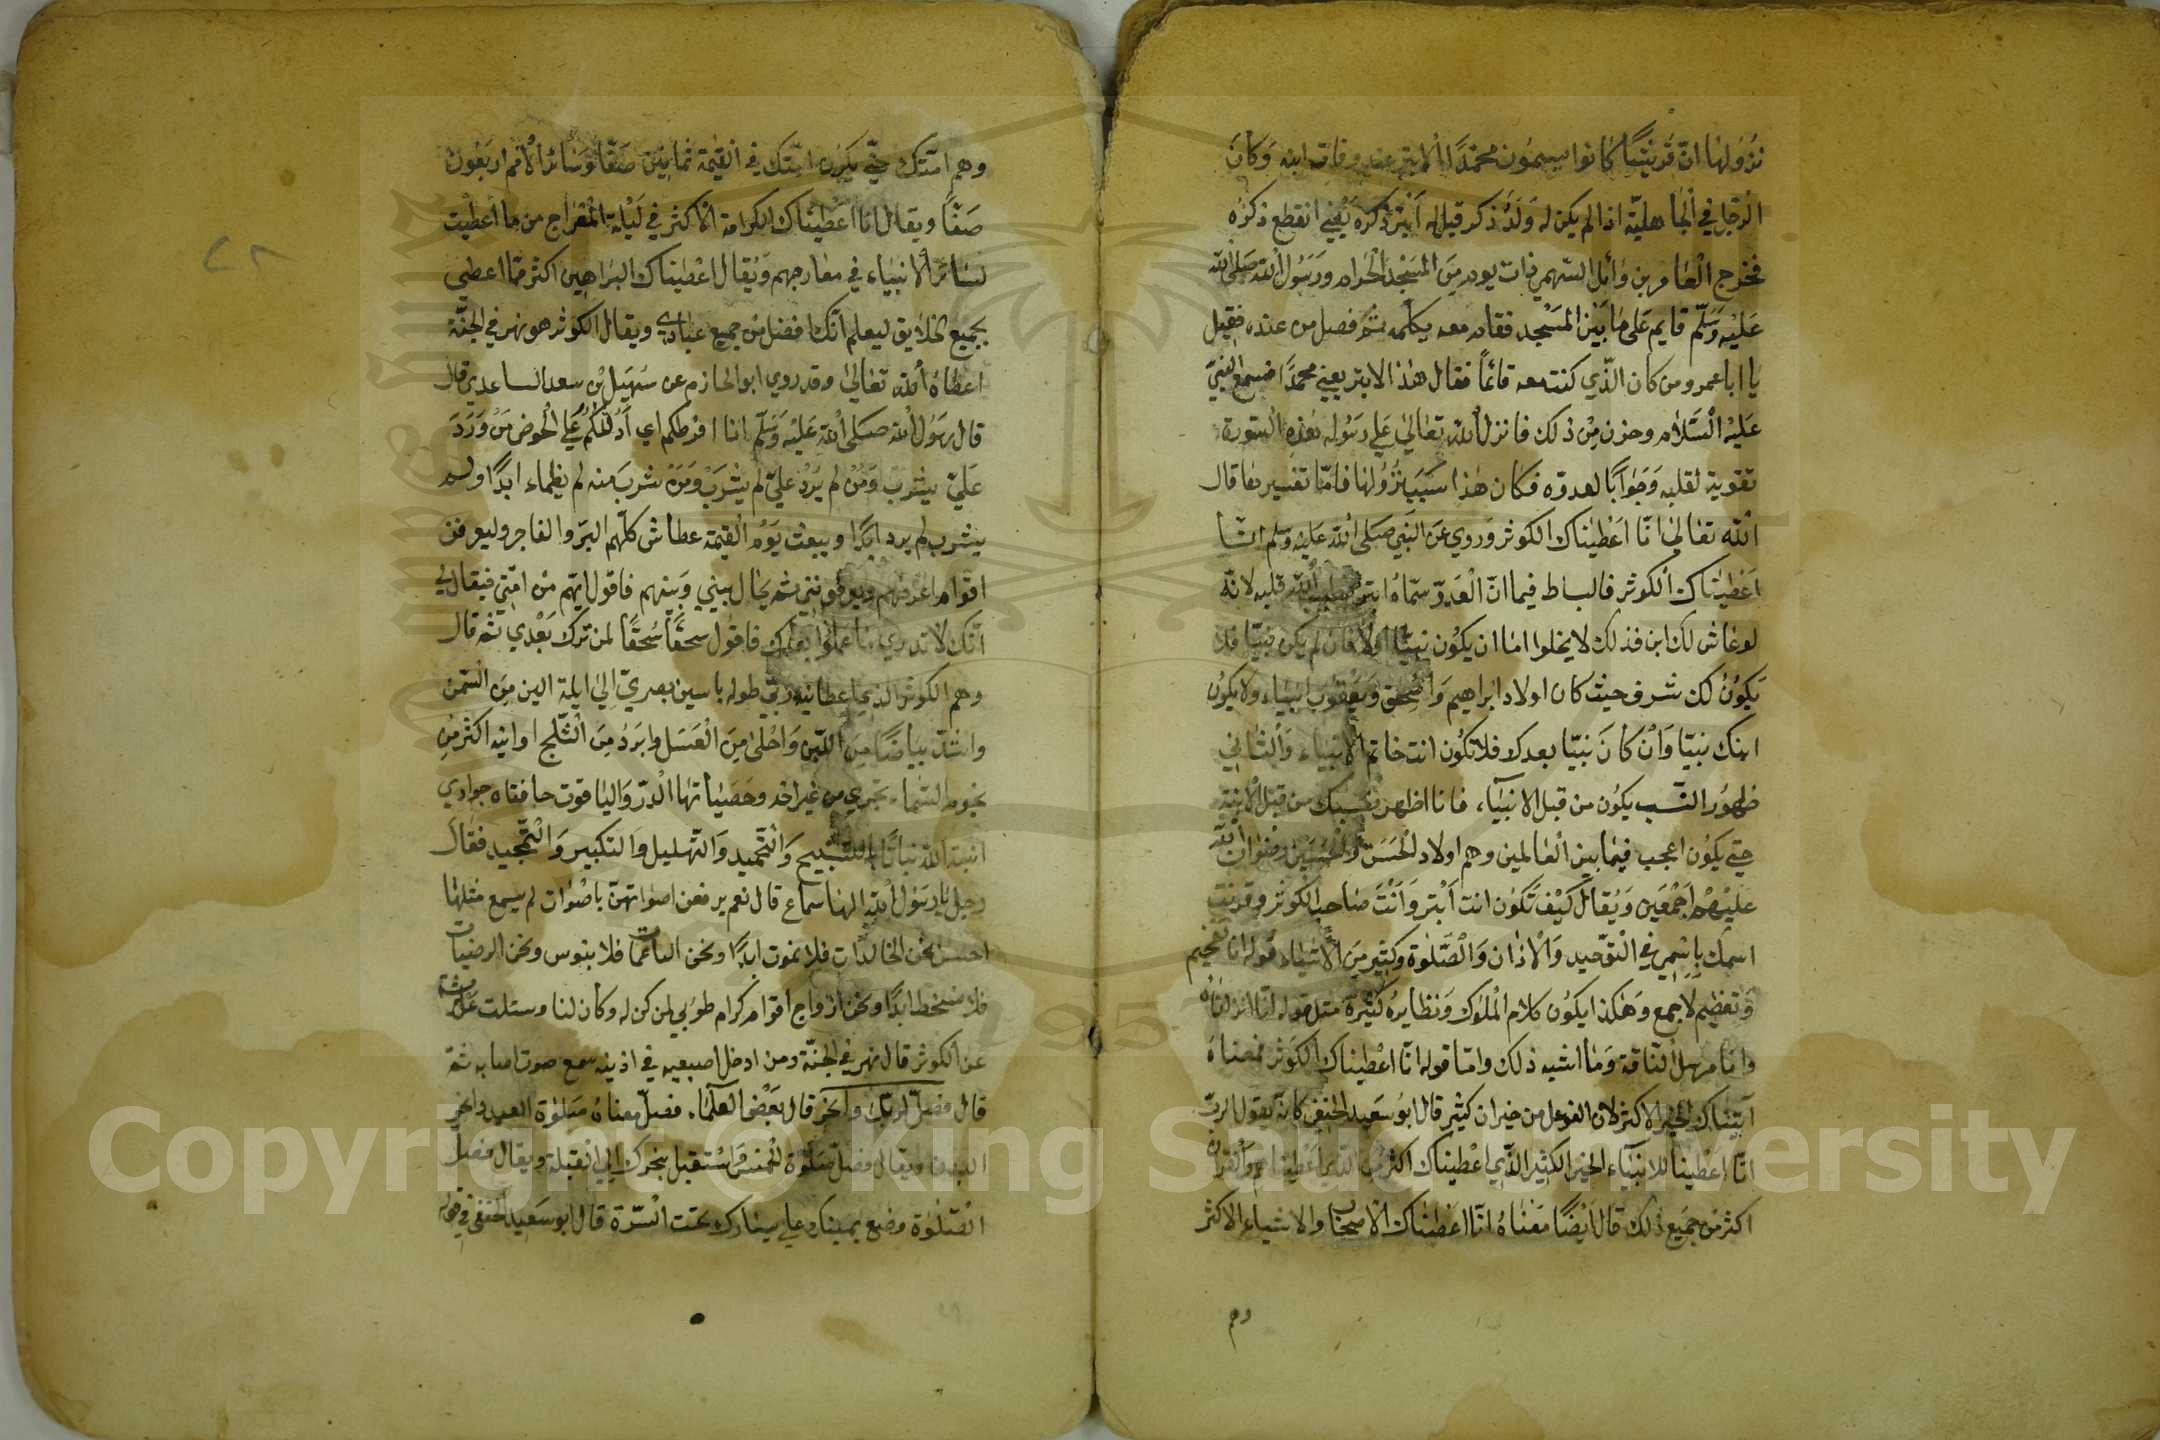 نزولها ان قريشا كانوا يسمون محمدا الابتر عند وفات ابنه وكان
الرجل في الجاهلية اذا لم يكن له ولد ذكر قيل له ابتر ذكره يعني انقطع ذكره
فخرج العاص بن وائل السهمي ذات يوم من المسجد الحرام ورسول الله صلى الله
عليه وسلم قايم على باب المسجد فقام معه يكلمه ثم فصل من عنده فقيل
يا ابا عمرو من كان الذي كنت معه قائما فقال هذا الابتر يعني محمدا فسمع النبي
عليه السلام وحزن من ذلك فانزل الله تعالى على رسوله هذه السورة
تقوية لقلبه وجوابا لعدوه فكان هذا سبب نزولها فاما تفسيرها قال
الله تعالى انا اعطيناك الكوثر وروي عن النبي صلى الله عليه وسلم انا
اعطيناك الكوثر فالبساط فيما ان العدو سماه ابتر الله قلبه لانه
لو عاش لك ابن فذلك لا يخلوا اما ان يكون نبيا اولا فان لم يكن نبيا فلا
يكون لك شرف حيث كان اولاد ابراهيم واسحق ويعقوب انبياء ولا يكون
ابنك نبيا وان كان نبيا بعدك فلا تكون انت خاتم الانبياء والثاني
ظهور النسب يكون من قبل الانبياء فانا اظهر نسبك من قبل الابنة
حتى يكون اعجب فيما بين العالمين وهم اولاد الحسن والحسين رضوان الله
عليهم اجمعين ويقال كيف تكون انت ابتر وانت صاحب الكوثر وقرنت
اسمك باسمي في التوحيد والاذان والصلوة وكثير من الاشياء قوله انا تفخيم
وتعظيم لا جمع وهكذا يكون كلام الملوك ونظايره كثيرة مثل قوله انا انزلناه
وانا مرسلوا الناقة وما اشبه ذلك واما قوله انا اعطيناك الكوثر فمعناه
آتيناك الخير الاكثر لان الفوعل من خيران كثير قال ابو سعيد الحنفي كانه يقول الرب
انا اعطينا للانبياء الخير الكثير الذي اعطيناك اكثر من الذي اعطيناهم والقران
اكثر من جميع ذلك قال ايضا معناه انا اعطيناك الاصحاب والاشياع الاكثر
وهم امتك حتى يكون امتك في القيمة ثمانين صفا وسائر الامم اربعون
صفا ويقال انا اعطيناك الكرامة الاكثر في ليلة المعراج من ما اعطيت
لسائر الانبياء في معارجهم ويقال اعطيناك البراهين اكثر مما اعطي
بجميع الخلايق ليعلم انك افضل من جميع عبادي ويقال الكوثر هو نهر في الجنة
اعطاه الله تعالى وقد روي ابو الحازم عن سهيل بن سعد الساعدي قال
قال رسول الله صلى الله عليه وسلم انا افرطكم اي ادلكم على الحوض من ورد
علي يشرب ومن لم يرد علي لم يشرب ومن شرب منه لم يظماء ابدا ولم
يشرب لم يرد ابدا ويبعث يوم القيمة عطاش كلهم البر والفاجر وليعرفن
اقوام اعرفهم ويعرفونني ثم يحال بيني وبينهم فاقول انهم من امتي فيقال لي
انك لا تدري ما عملوا بعدك فاقول سحقا سحقا لمن ترك بعدي ثم قال
وهم الكوثر الذي اعطانيه ربي طوله ما بين بصري الى ايلة الين من السمن
واشد بياضا من اللبن واحلى من العسل وابرد من الثلج اوانيه اكثر من
نجوم السماء تجري من غير اخد وحصياتها الدر والياقوت حافتاه جوادي
انبته الله نباتا بالتسبيح والتحميد والتهليل والتكبير والتمجيد فقال
رجل يا رسول الله الهنا سماع قال نعم يرفعن اصواتهن باصوات لم يسمع مثلها
احسن نحن الخالدات فلا نموت ابدا ونحن الناعمات فلا بنوس ونحن الرضيات
فلا نسخط ابدا ونحن ازواج اقوام كرام طوبي لمن كن له وكان لنا وسئلت عائشة
عن الكوثر قال نهر في الجنة ومن ادخل اصبعيه في اذنيه سمع صوت اصابه ثم
قال فصل لربك وانحر قال بعض العلماء فصل معناه صلوة العيد وانحر
البدن ويقال فصل صلوة الخمس واستقبل بنحرك الى القبلة ويقال فصل
الصلوة وضع يمينك على يسارك تحت السرة قال ابو سعيد الحنفي في قوله
٢٨
Copyright © King Saud University
1957